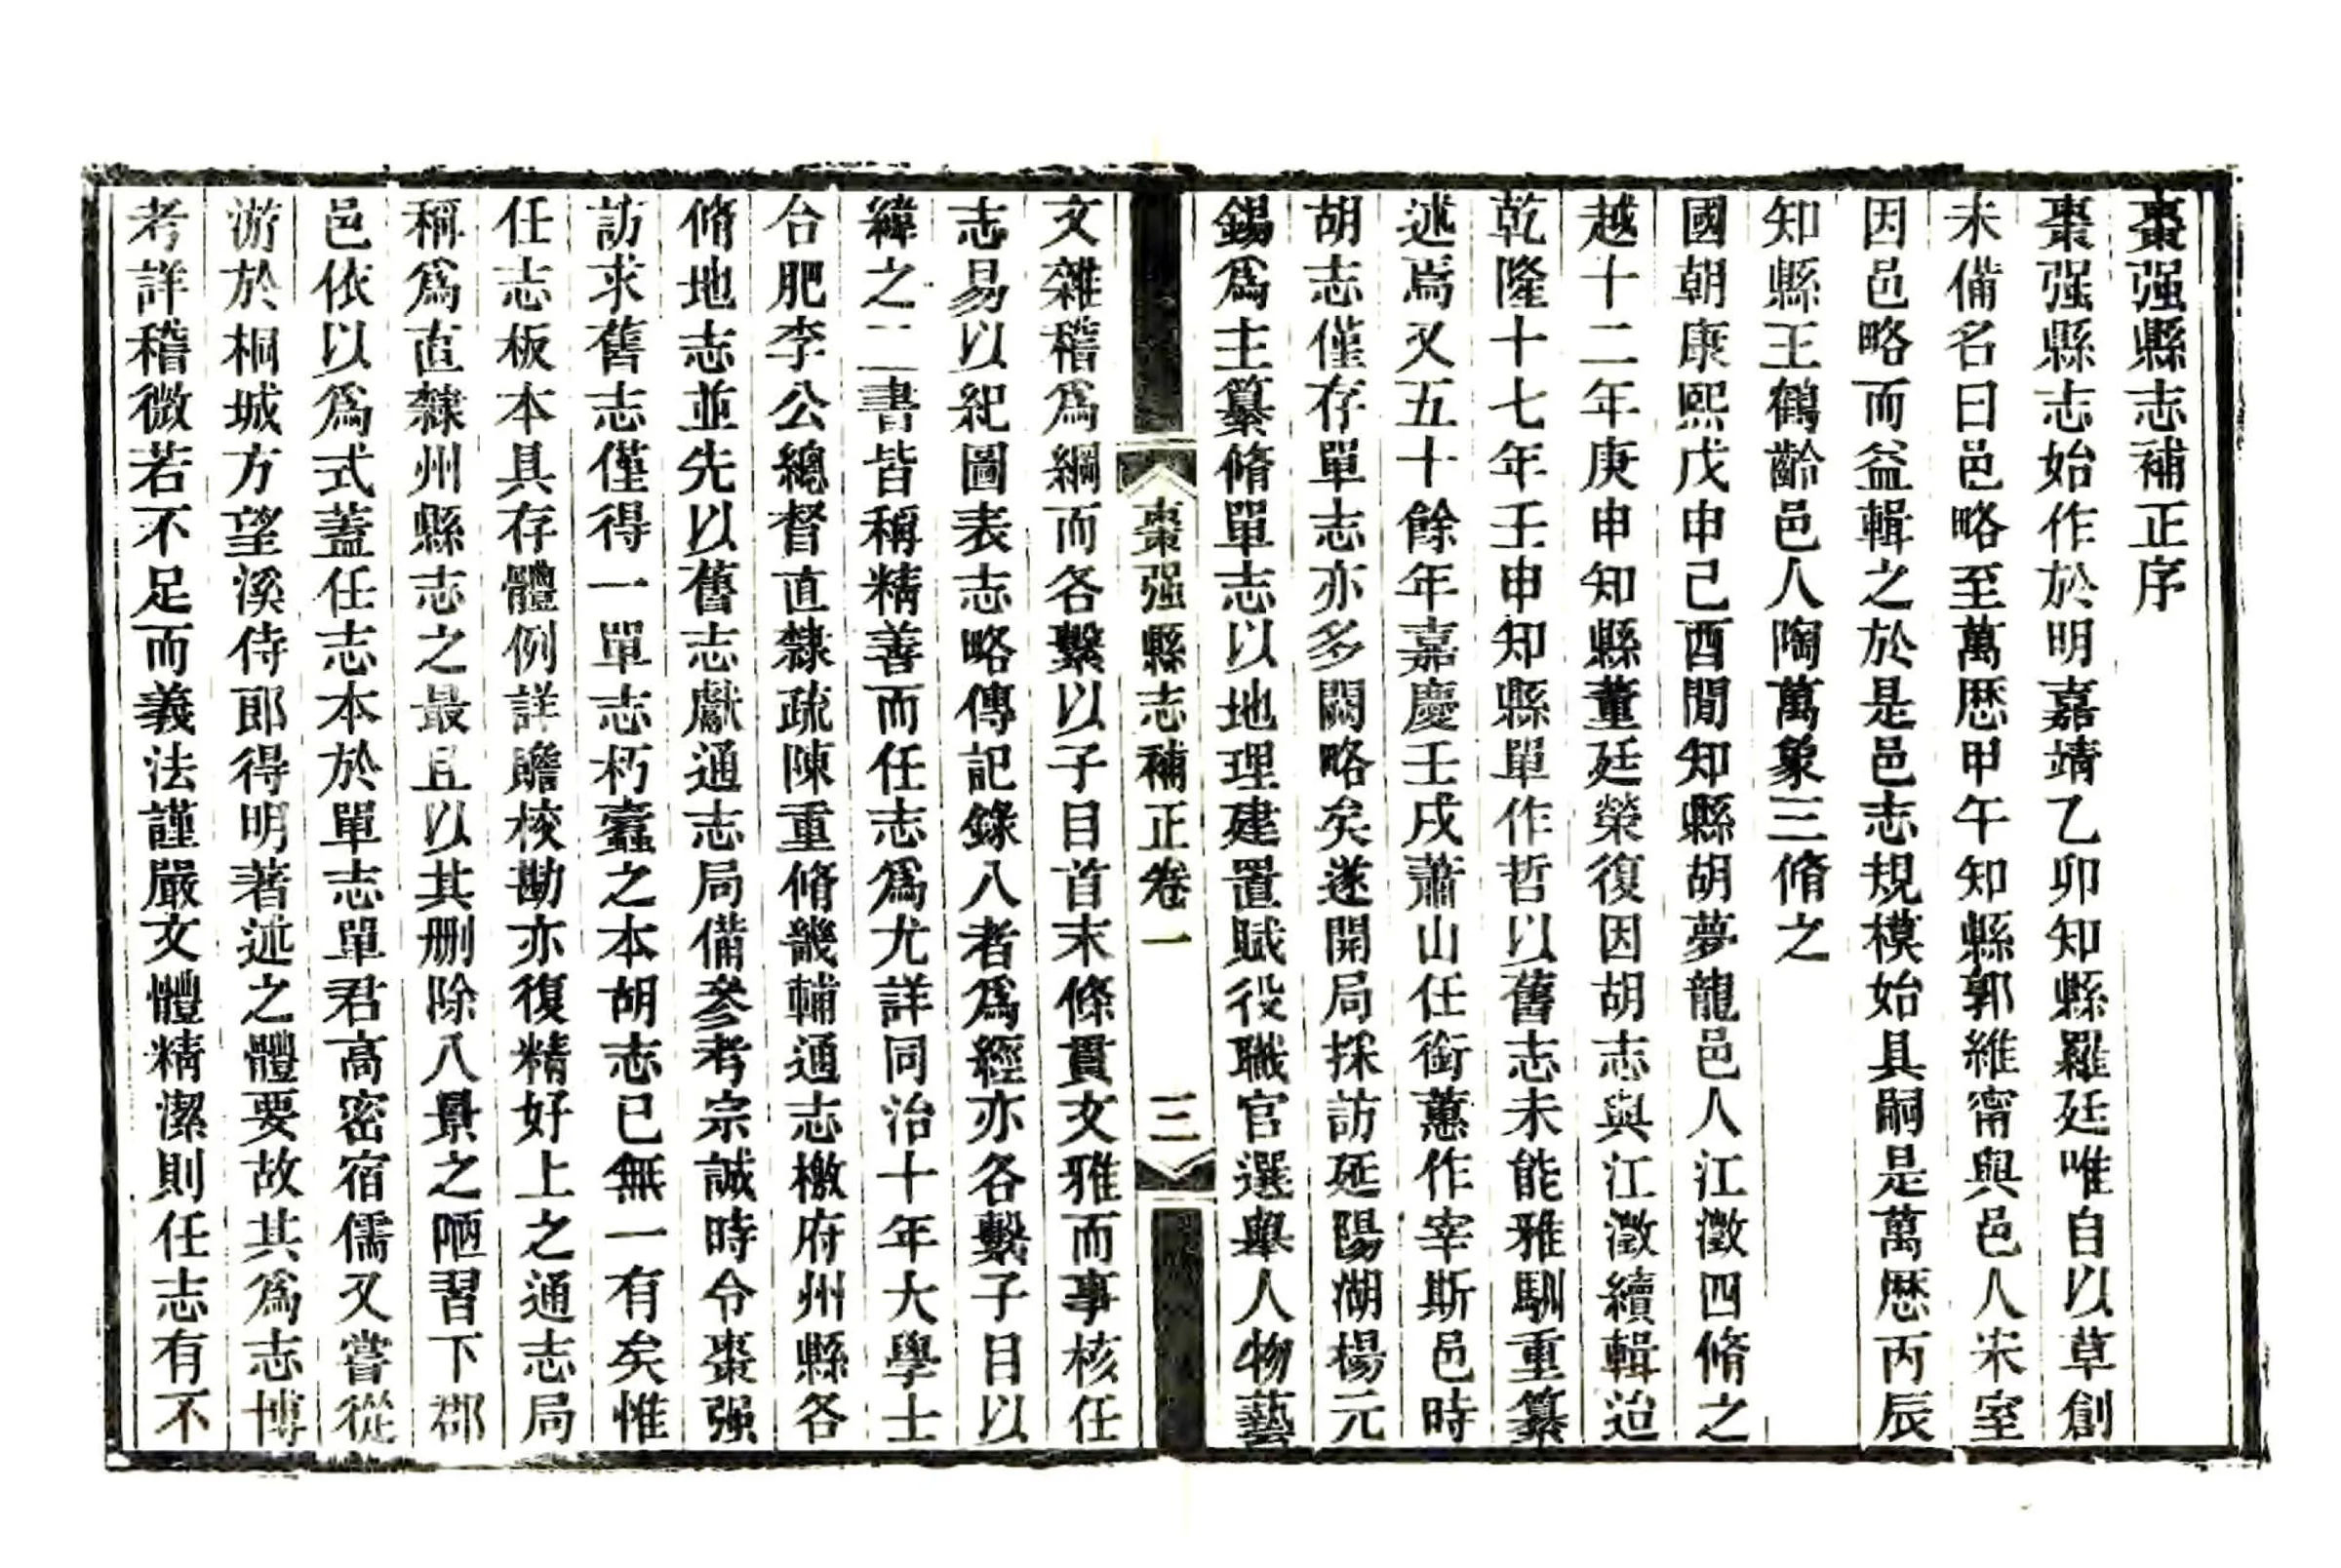 棗强縣志補正序
棗强縣志始作於明嘉靖乙卯知縣羅廷唯自以草創
未備名曰邑略至萬厯甲午知縣郭維甯與邑人宋室
因邑略而益輯之於是邑志規模始具嗣是萬厯丙辰
知縣王鶴齡邑人陶萬象三脩之
國朝康熙戊申己酉閒知縣胡夢龍邑人江瀓四脩之
越十二年庚申知縣董廷榮復因胡志與江瀓續輯迨
乾隆十七年壬申知縣單作哲以舊志未能雅馴重纂
述焉又五十餘年嘉慶壬戌蕭山任銜蕙作宰斯邑時
胡志僅存單志亦多闕略矣遂開局採訪延陽湖楊元
錫爲主纂脩單志以地理建置賦役職官選舉人物藝
棗强縣志補正卷一 三
文雜稽爲綱而各繫以子目首末條貫文雅而事核任
志易以紀圖表志略傳記錄八者爲經亦各繫子目以
緯之二書皆稱精善而任志爲尤詳同治十年大學士
合肥李公總督直隸疏陳重脩畿輔通志檄府州縣各
脩地志並先以舊志獻通志局備參考宗誠時令棗强
訪求舊志僅得一單志朽蠹之本胡志已無一有矣惟
任志板本具存體例詳贍校勘亦復精好上之通志局
稱爲直隸州縣志之最且以其删除八景之陋習下郡
邑依以爲式蓋任志本於單志單君高密宿儒又嘗從
游於桐城方望溪侍郎得明著述之體要故其爲志博
考詳稽微若不足而義法謹嚴文體精潔則任志有不